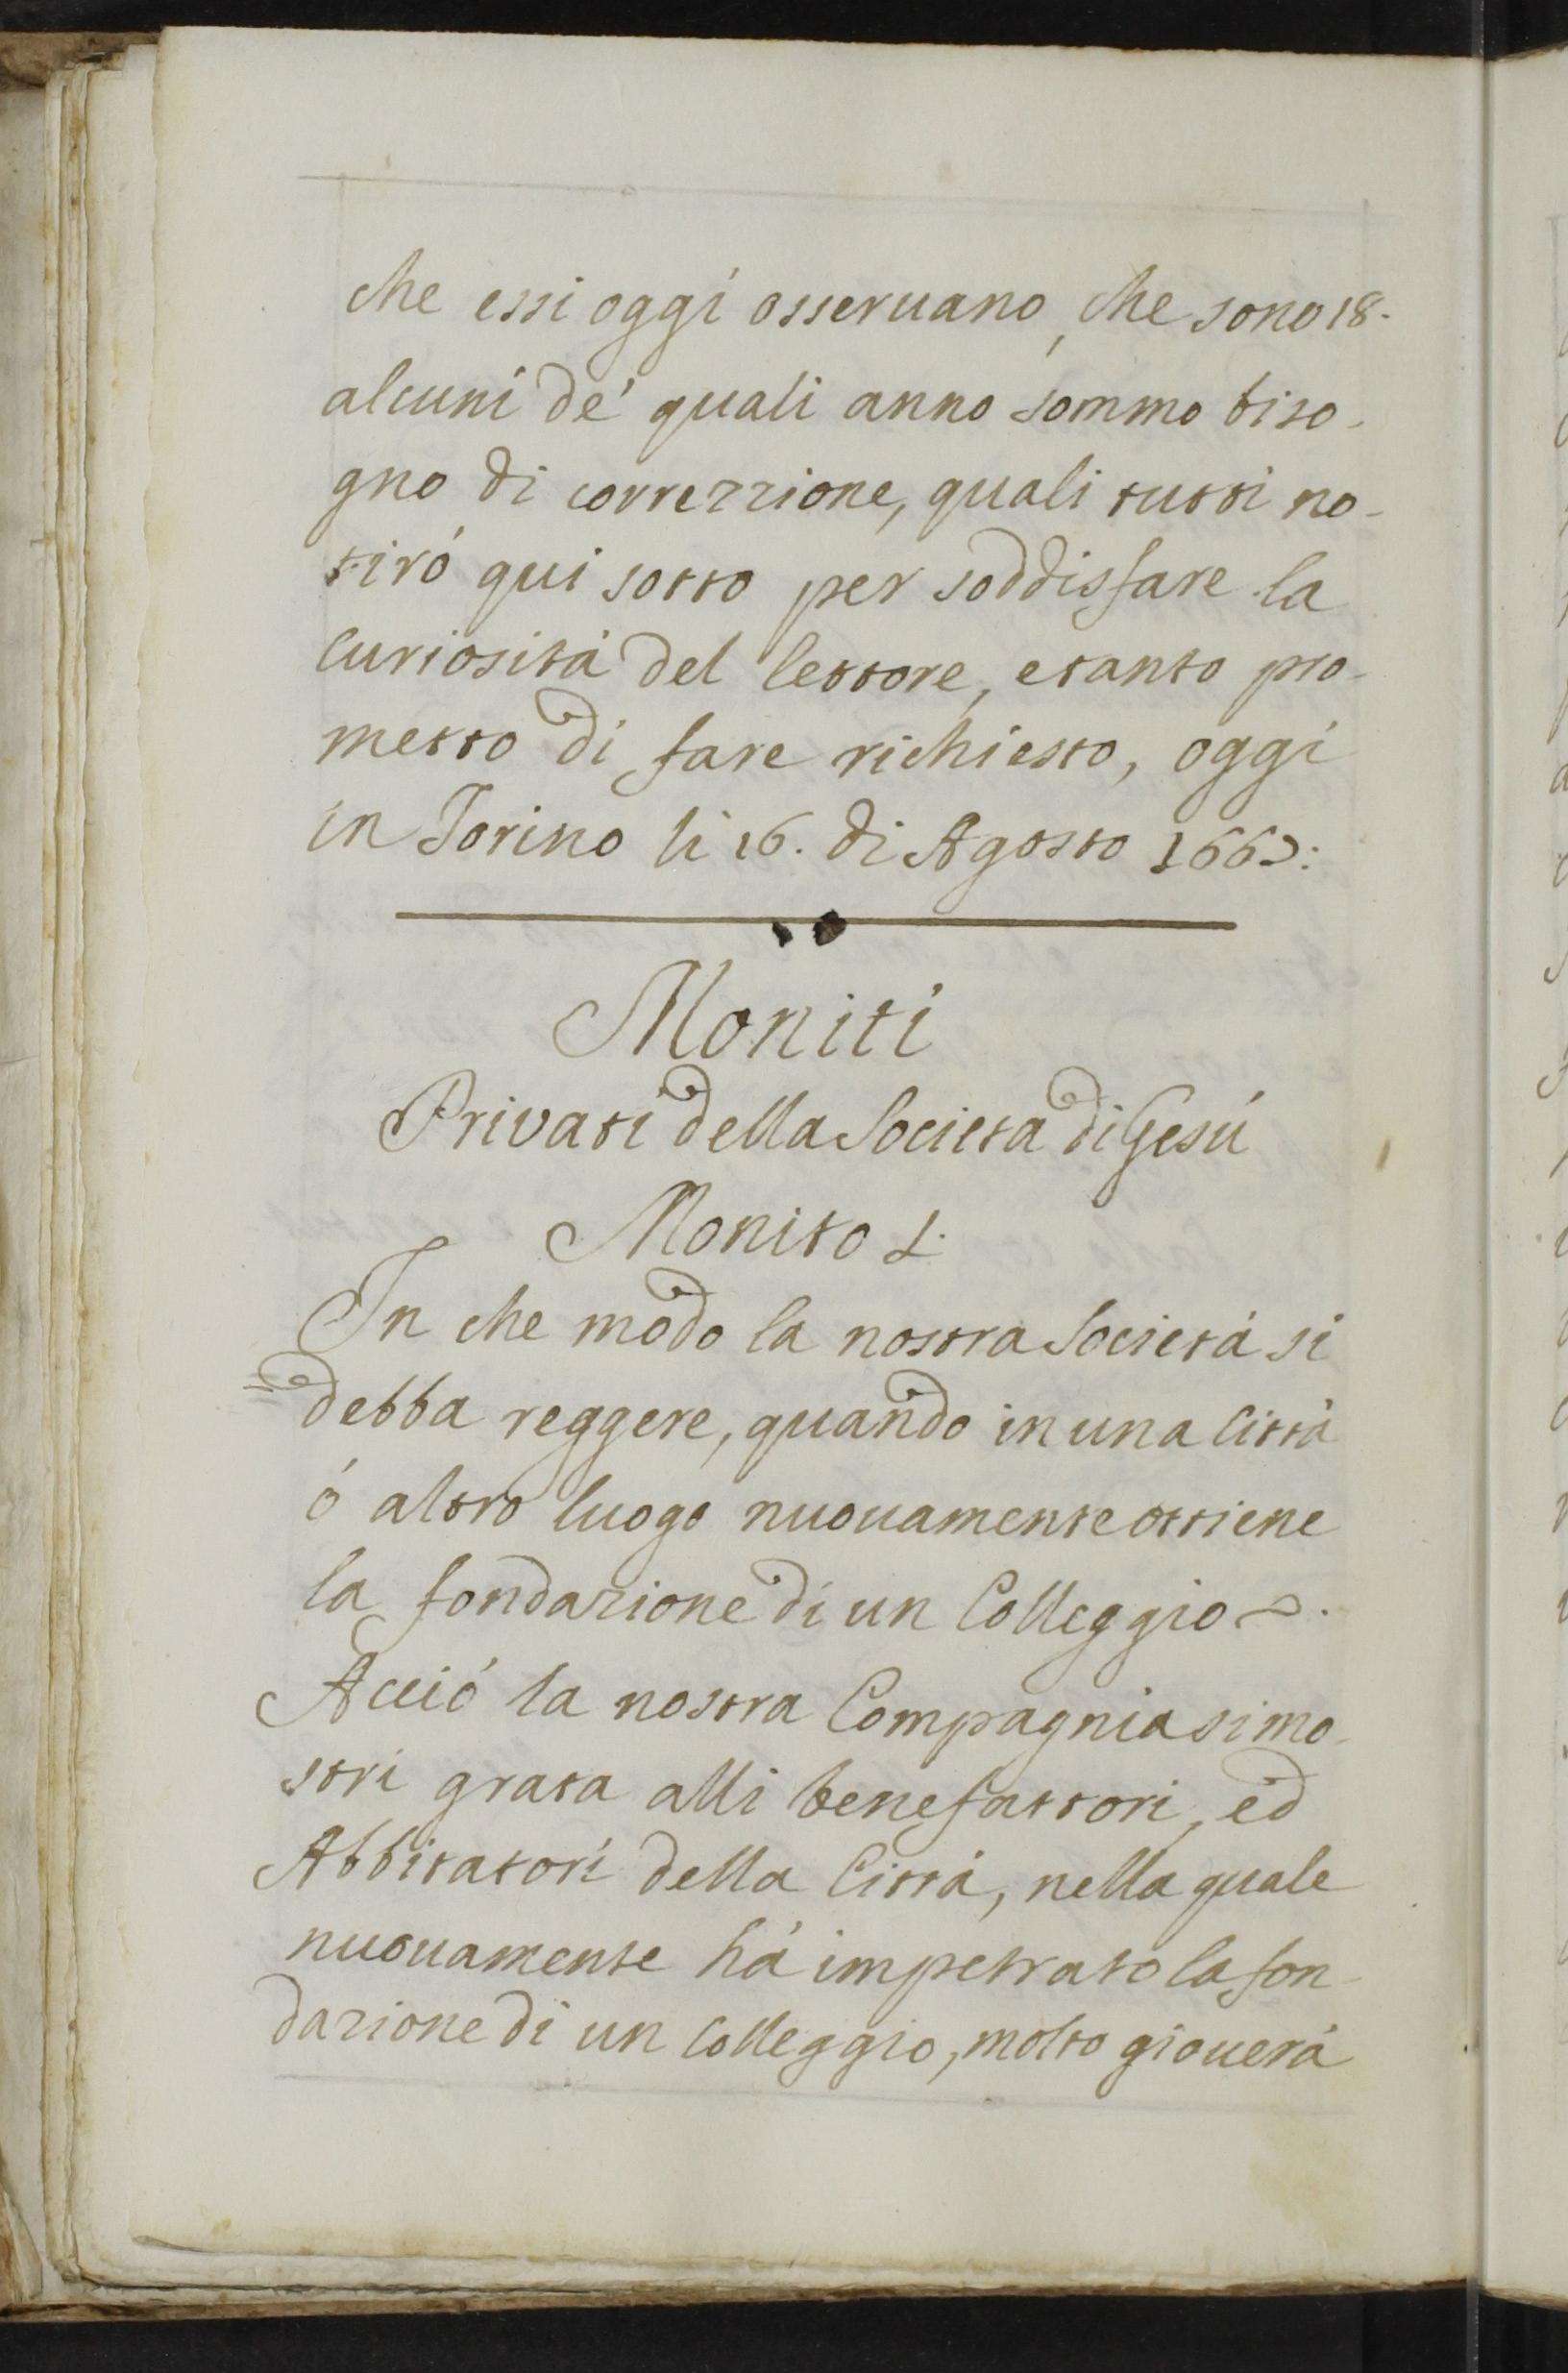 che essi oggi osseruano, che sono 18.
alcuni dè quali anno sommo biso-
gno di correzzione, quali tutti no-
tirò qui sotto per soddisfare la
Curiosità del lettore, e tanto pro-
metto di fare richiesto, oggi
in Torino li 16. di Agosto
Moniti
Privati della Società di Gesù
Monito 1.
In che modo la nostra Società si
debba reggere, quando in una Città
ò altro luogo nuouamente ottiene
la fondazione di un Colleggio.
Acciò la nostra Compagnia si mo-
stri grata alli benefattori, ed
Abbitatori della Città, nella quale
nuouamente hà impetrato la fon-
dazione di un Colleggio, molto giouerà